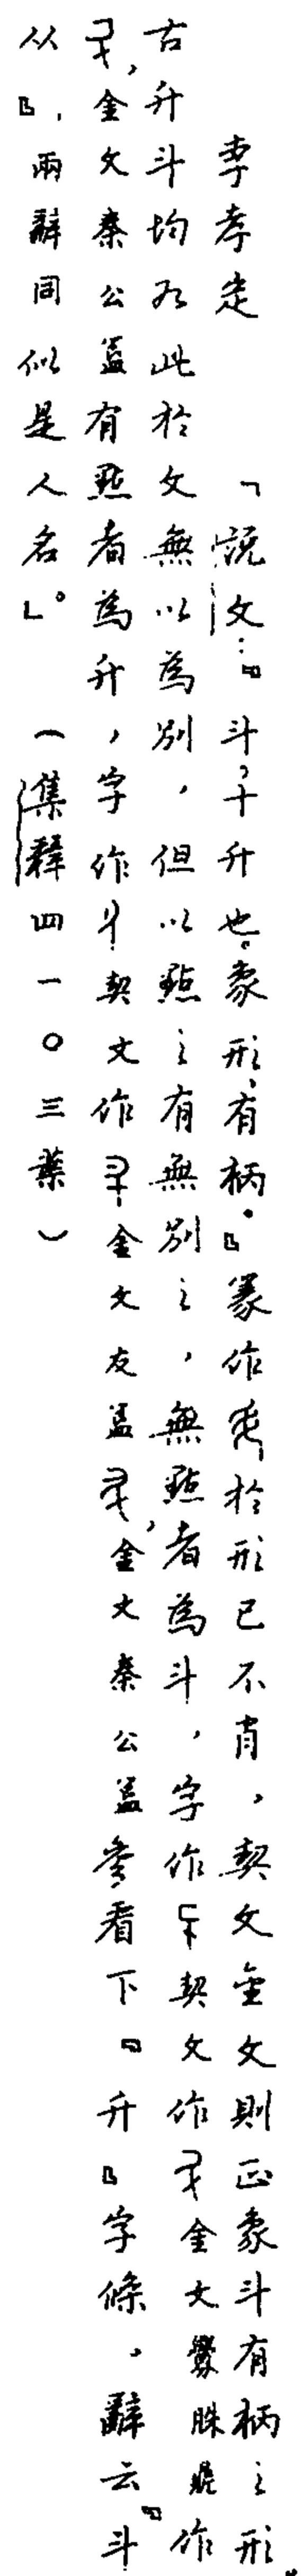 李孝定　「說文：『斗，十升也。象形，有柄。』篆作於形已不肖，契文金文則正象斗有柄之形。
古升斗均為此於文無以為別，但以點之有無別之，無點者為斗，字作契文作金文作
金文秦公簋有點者為升，字作契文作金文友簋，金文秦公簋參看下『升』字條，辭云『斗
从』，兩辭同似是人名」。（集釋四一〇三葉）